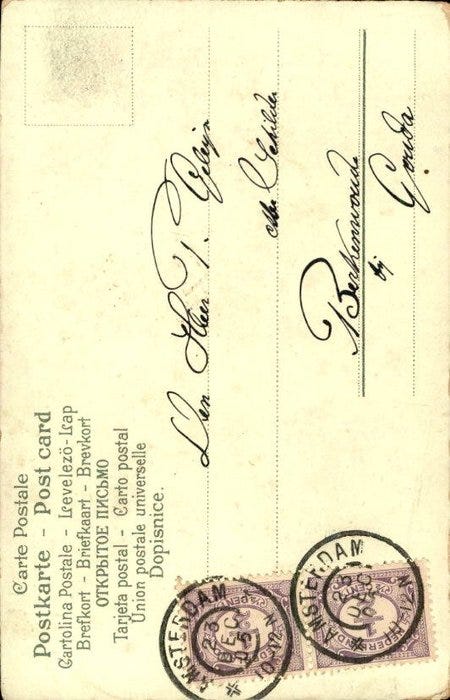 Carte Postale
Postkarte - Post card
Cartolina Postale - Levelezö-Lap
Brefkort - Briefkaart - Brevkort
ОТКРЫТОЕ ПИСЬМО
Tarjeta postal - Carto postal
Union postale universelle
Dopisnice.
Den Heer P. Geleyn
Mr Schilder
Berkenwoude
bij
Gouda
AMSTERDAM
DEC
AMSTERDAM
DEC